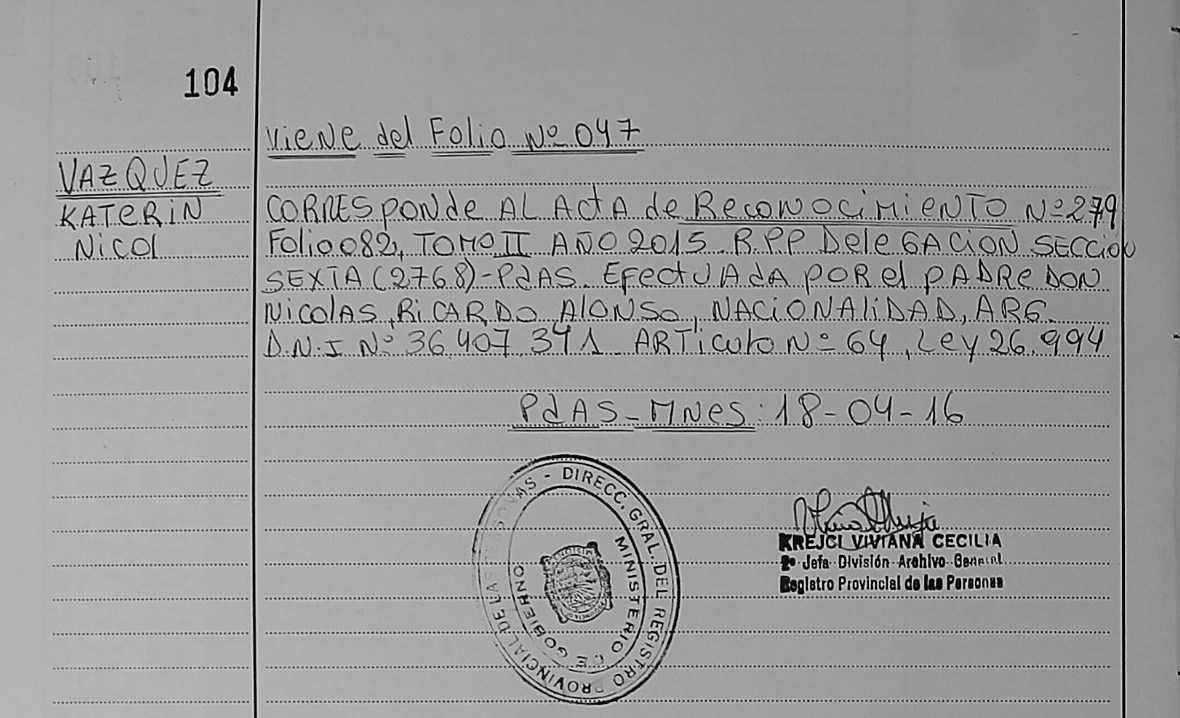 104
Viene del Folio Nº 047
VAZQUEZ
KATERIN
Nicol
CORRESponde AL ActA de ReconocimiENTO Nº 279
Folio 082, TOMO II AÑO 2015. R.P.P DeleGACION SECCION
SEXTA (2768)-PdAS. EfectUAdA POR el PADRE DON
Nicolas, RiCARDO AlONSO, NACiONAliDAD, ARG.
D.N.I Nº 36.407.341 ARTículo Nº 64, Ley 26.994
PdAS-MNes: 18-04-16
REGISTRO PROVINCIAL DE LAS PERSONAS - DIRECC. GRAL. DEL
MINISTERIO DE GOBIERNO
KREJCI VIVIANA CECILIA
2º Jefa División Archivo General
Registro Provincial de las Personas